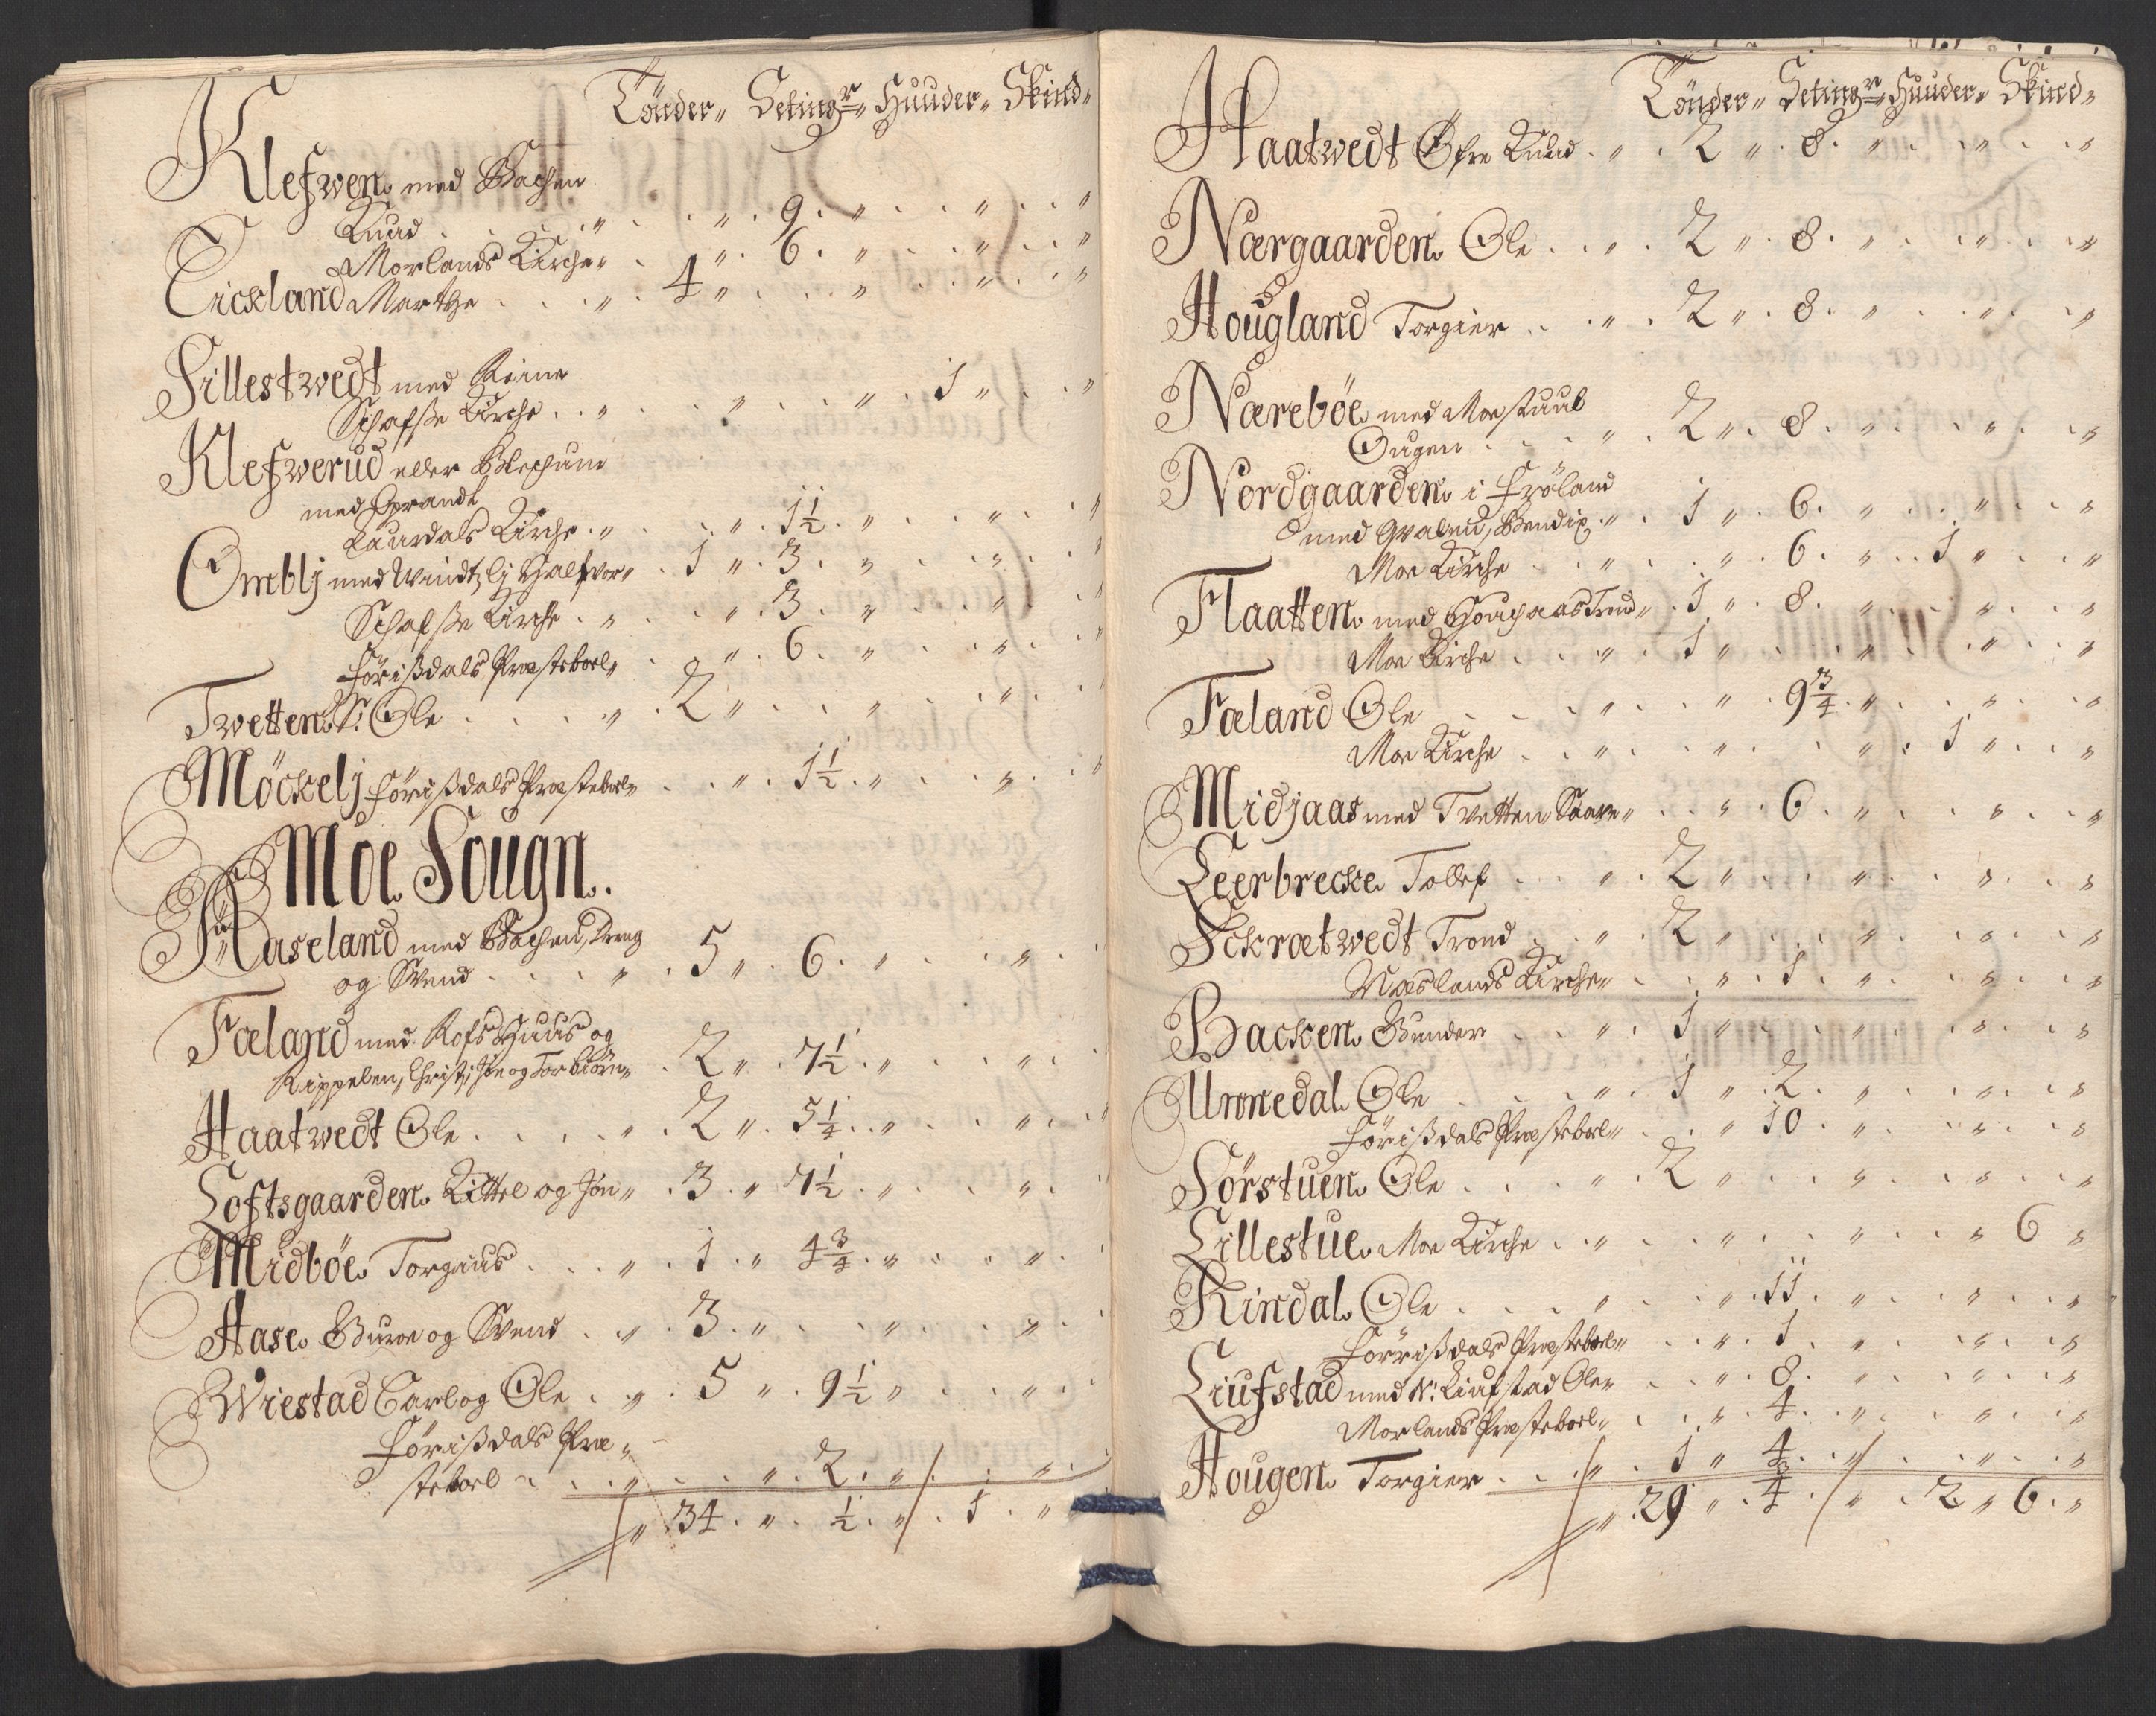 Tönder„ Setingr„ Huuder„ Skind„
Klefwen med Bachen
Knud . . „ . . „ . 9 . „ . . „ . . „
Morlands Kirche„ . „ . 6 . „ . . „ . . „
Eickland Marthe . . . „ . 4 „ . . „ . . „ . . „
Sillestwedt med Reime
Schafsße Kirche . . „ . . „ . . „ . 1 „ . . „
Klefwerud eller Blechum
med Grandt
Laurdals Kirche . „ . . „ . 1½ . „ . . „ . . „
Ombli med Windtzli Halfvor„ . 1 „ . 3 . „ . . „ . . „
Schafsße Kirche . „ . . „ . 3 . „ . . „ . .
Förißdals Præsteboel„ . „ . 6 . „ . . „ . .
Twetten S: Ole . . . „ . 2 „ . . „ . . „ . .
Möckelj Förißdals Præsteboel„ . . „ . 1½ . „ . . „ . . „
Moe Sougn.
Aaseland med Bachen, Dreng
og Svend . . . „ . 5 „ . 6 . „ . . „ .
Fœland med Rofs Huus og
Rippelen, Christi, Jon og Torbiörn„ . 2 „ . 7½ . „ . . „ .
Haatwedt Ole . . . . „ . 2 „ . 5¼ . „ . . „ .
Loftsgaarden Kittel og Jon„ . 3 . „ 7½ . „ . . „ .
Midböe Torgius . . . „ . 1 . „ 4¾ . „ . . „ .
Aase Gunne og Svend . „ . 3 . „ . . „ . . „ .
Wiestad Carl og Ole . „ . 5 „ . 9½ „ . . „ .
Förißdals Præ„
steboel . . . „ . . „ . 2 . „ . . „ .
„ 34 . „ . ½ . „ . 1 . „
Tönder„ Setingr„ Huuder„ Skind„
Haatwedt Öfre Knud . „ . 2 „ . 8 . „ . . „ . . „
Nœrgaarden Ole . . „ . 2 „ . 8 . „ . . „ . . „
Hougland Torgier . . „ . 2 „ . 8 . „ . . „ . . „
Nœreböe med Moestuul
Ougen . . . „ . 2 „ . 8 . „ . . „ . . „
Nordgaarden i Fröland
med Gvalen, Bendix . „ . 1 „ . 6 . „ . . „ . . „
Moe Kirche . . „ . . „ . 6 . „ . 1 „ . . „
Flaatten med Houchaas Trond„ . 1 „ . 8 . „ . . „ . . „
Moe Kirche . . . „ . 1 „ . . „ . . „ . . „
Fœland Ole . . . „ . . „ . 9¾ . „ . . „ . . „
Moe Kirche . . „ . . „ . . „ . 1 „ . . „
Midjaas med Tvetten Saave„ . . „ . 6 . „ . . „ . . „
Leerbrecke Tollef . . . „ . 2 „ . . „ . . „ . . „
Schrœtwedt Trond . . „ . 2 „ . . „ . . „ . . „
Næslands Kirche„ . . „ . 1 . „ . . „ . . „
Backen Gunder . . „ . 1 „ . . „ . . „ . . „
Unnedal Ole . . . „ . 1 „ . 2 . „ . . „ . . „
Förißdals Præsteboel„ . . „ 10 . „ . . „ . . „
Sörstuen Ole . . . „ . 2 „ . . „ . . „ . . „
Lillestue Moe Kirche . „ . . „ . . „ . . „ 6 „
Rindal Ole . . . „ . . „ . 11 . „ . . „ . . „
Förrißdals Præsteboel„ . . „ . 1 . „ . . „ . . „
Liufstad med N: Liufstad Ole„ . . „ . 8 . „ . . „ . . „
Morlands Præsteboel„ . . „ . 4 . „ . . „ . . „
Hougen Torgier . . „ . 1 „ 4 . „ . . „ . . „
„ . 29 „ . ¾ . „ . 2 „ 6 . „